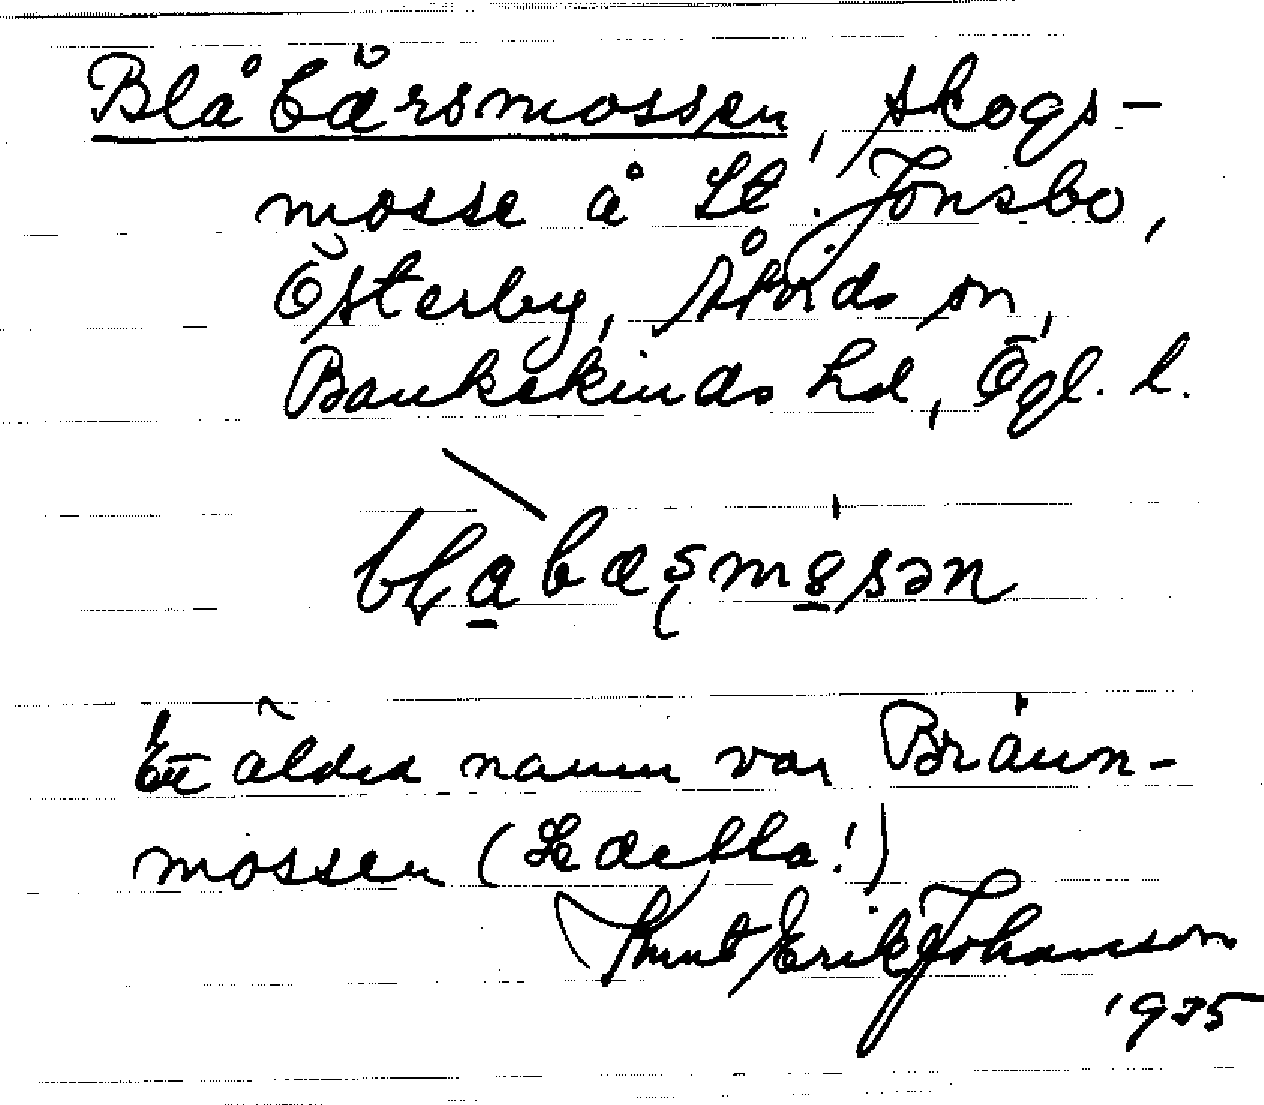 Blåbärsmossen, skogs-
mosse å St. Jonsbo,
Österby, Åtvids sn,
Bankekinds hd, Ögl. l.
blabæʂmosən
Ett äldre namn var Bräun-
mossen
Knut Erik Johansson
1975